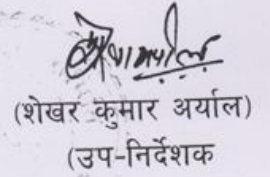 (शेखर कुमार अर्याल)
(उप-निर्देशक